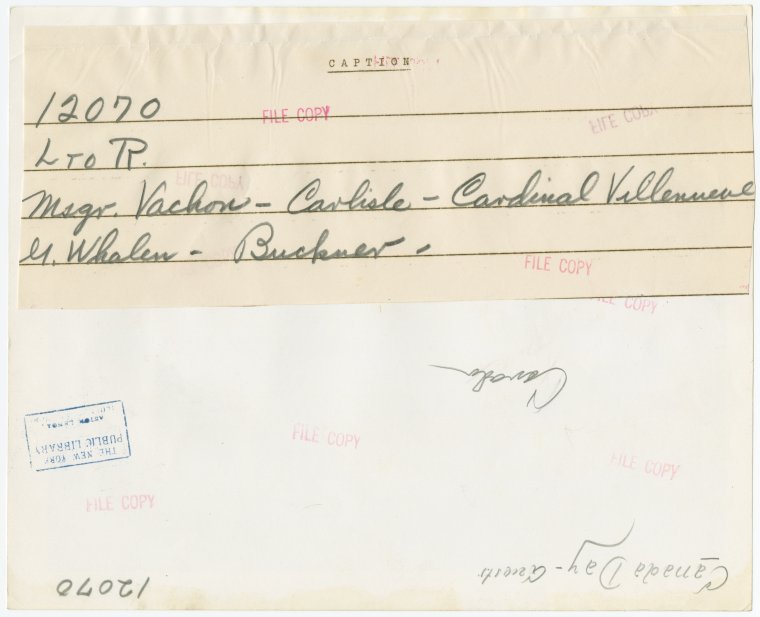 CAPTION
12070
FILE COPY
FILE COPY
L TO R.
FILE COPY
Msgr. Vachon - Carlisle - Cardinal Villenueve
G. Whalen - Buckner -
FILE COPY
FILE COPY
Canada
THE NEW YORK
PUBLIC LIBRARY
ASTOR LENOX
FILE COPY
FILE COPY
FILE COPY
Canada Day - Guests
12070